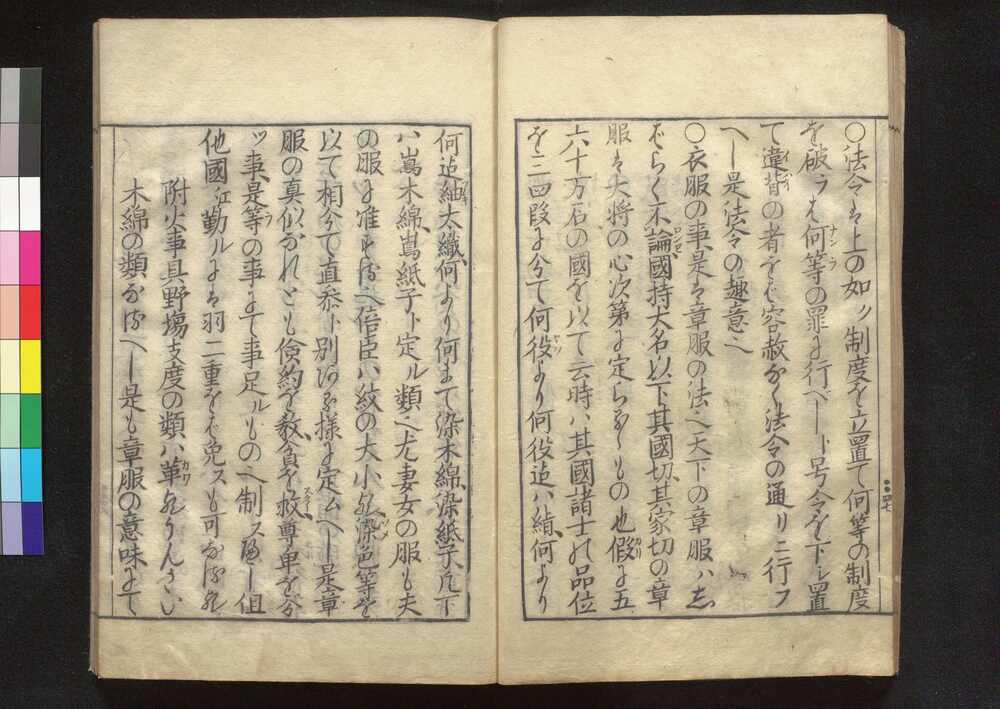 〇法令は上の如ク制度を立置て何等の制度
を破らば何等の罪に行べしト号令を下シ置
て違背の者をば容赦なく法令の通リニ行フ
べし是法令の趣意也
〇衣服の事是は章服の法也天下の章服ハ志
ばらく不論國持大名以下其國切其家切の章
服は大将の心次第に定らるゝもの也假に五
六十万石の國を以て云時ハ其國諸士の品位
を三四段に分て何役より何役迄ハ絹何より
何迄紬太織何より何まて染木綿染紙子凡下
ハ嶌木綿嶌紙子ト定ル類也尤妻女の服も夫
の服に准ずる也倍臣ハ紋の大小染色等を
以て相分て直参ト別ある様に定ムべし是章
服の真似なれども倹約を教貧を救尊卑を分
ツ事是等の事にて事足ルもの也制スべし但
他國江勤ルには羽二重をば免スも可なる
附火事具野塲支度の類ハ革
木綿の類なるべし是も章服の意味にて